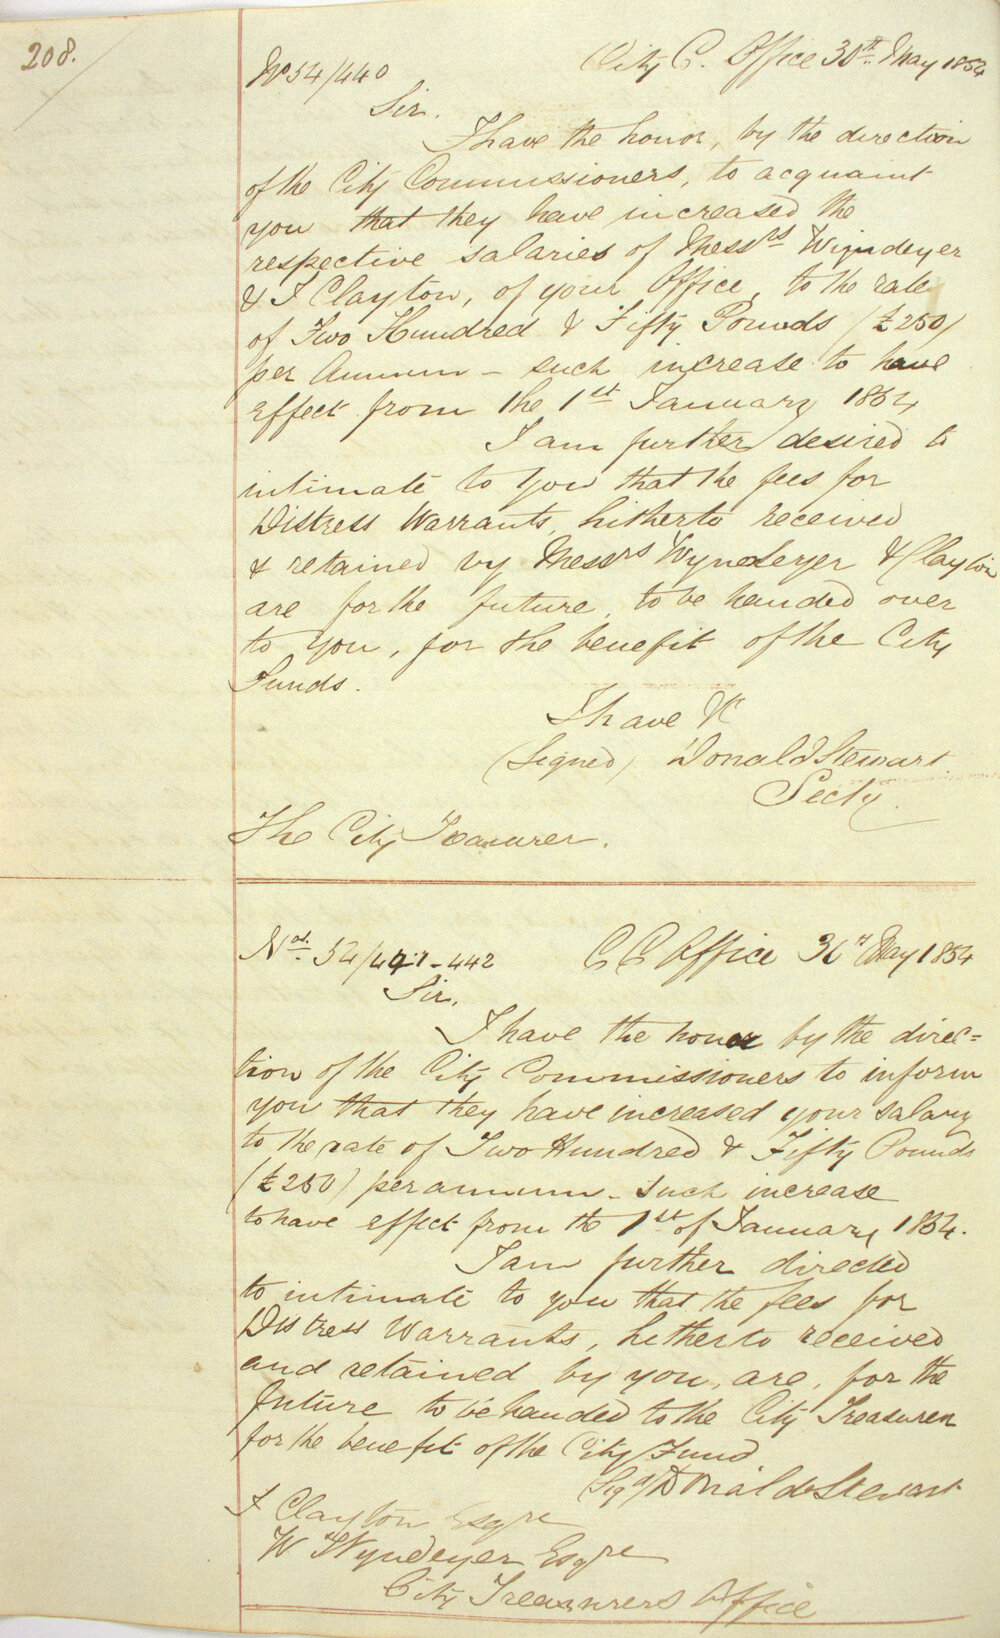 208.
No 54/440
City C. Office 30th May 1854
Sir.
I have the honor, by the direction
of the City Commissioners, to acquaint
you that they have increased the
respective salaries of Messrs Wyndeyer
& J Clayton, of your Office, to the rate
of Two Hundred & Fifty Pounds (£250)
per Annum - such increase to have
effect from the 1st January 1854
I am further desired to
intimate to you that the fees for
Distress Warrants, hitherto received
& retained by Messrs Wyndeyer & Clayton
are for the future, to be handed over
to you, for the benefit of the City
Funds.
I have &c
(Signed) Donald Stewart
Secty.
The City Treasurer.
Nos. 54/441-442
C C Office 30th May 1854
Sir.
I have the honor by the direc=
tion of the City Commissioners to inform
you that they have increased your salary
to the rate of Two Hundred & Fifty Pounds
(£250) per annum - such increase
to have effect from the 1st of January 1854.
I am further directed
to intimate to you that the fees for
Distress Warrants, hitherto received
and retained by you, are, for the
future to be handed to the City Treasurer
for the benefit of the City Fund
Sigd/ Donald Stewart
J Clayton Esqre
W Wyndeyer Esqre
City Treasurers Office